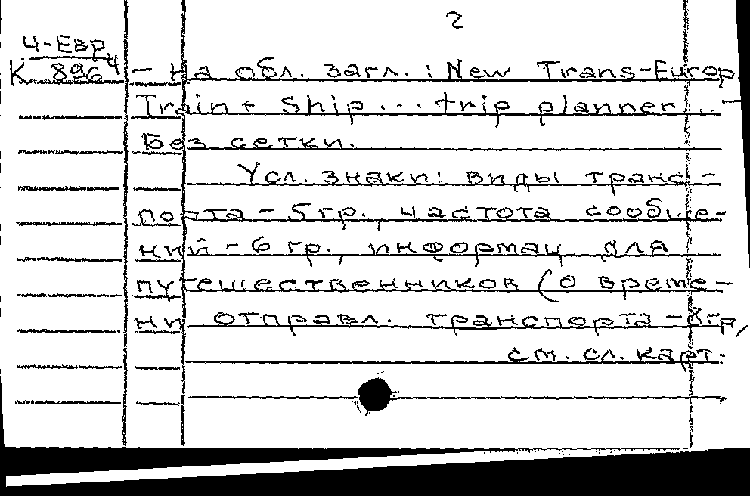 2
Ч-Евр
К 896⁴ - На обл. загл.: New Trans-Europ
Train + Ship... trip planner... -
Без сетки.
Усл. знаки: виды транс-
порта - 5 гр., частота сообще-
ний - 6 гр., информац для
путешественников (о време-
ни отправл. транспорта - 8 гр,
см. сл. карт.